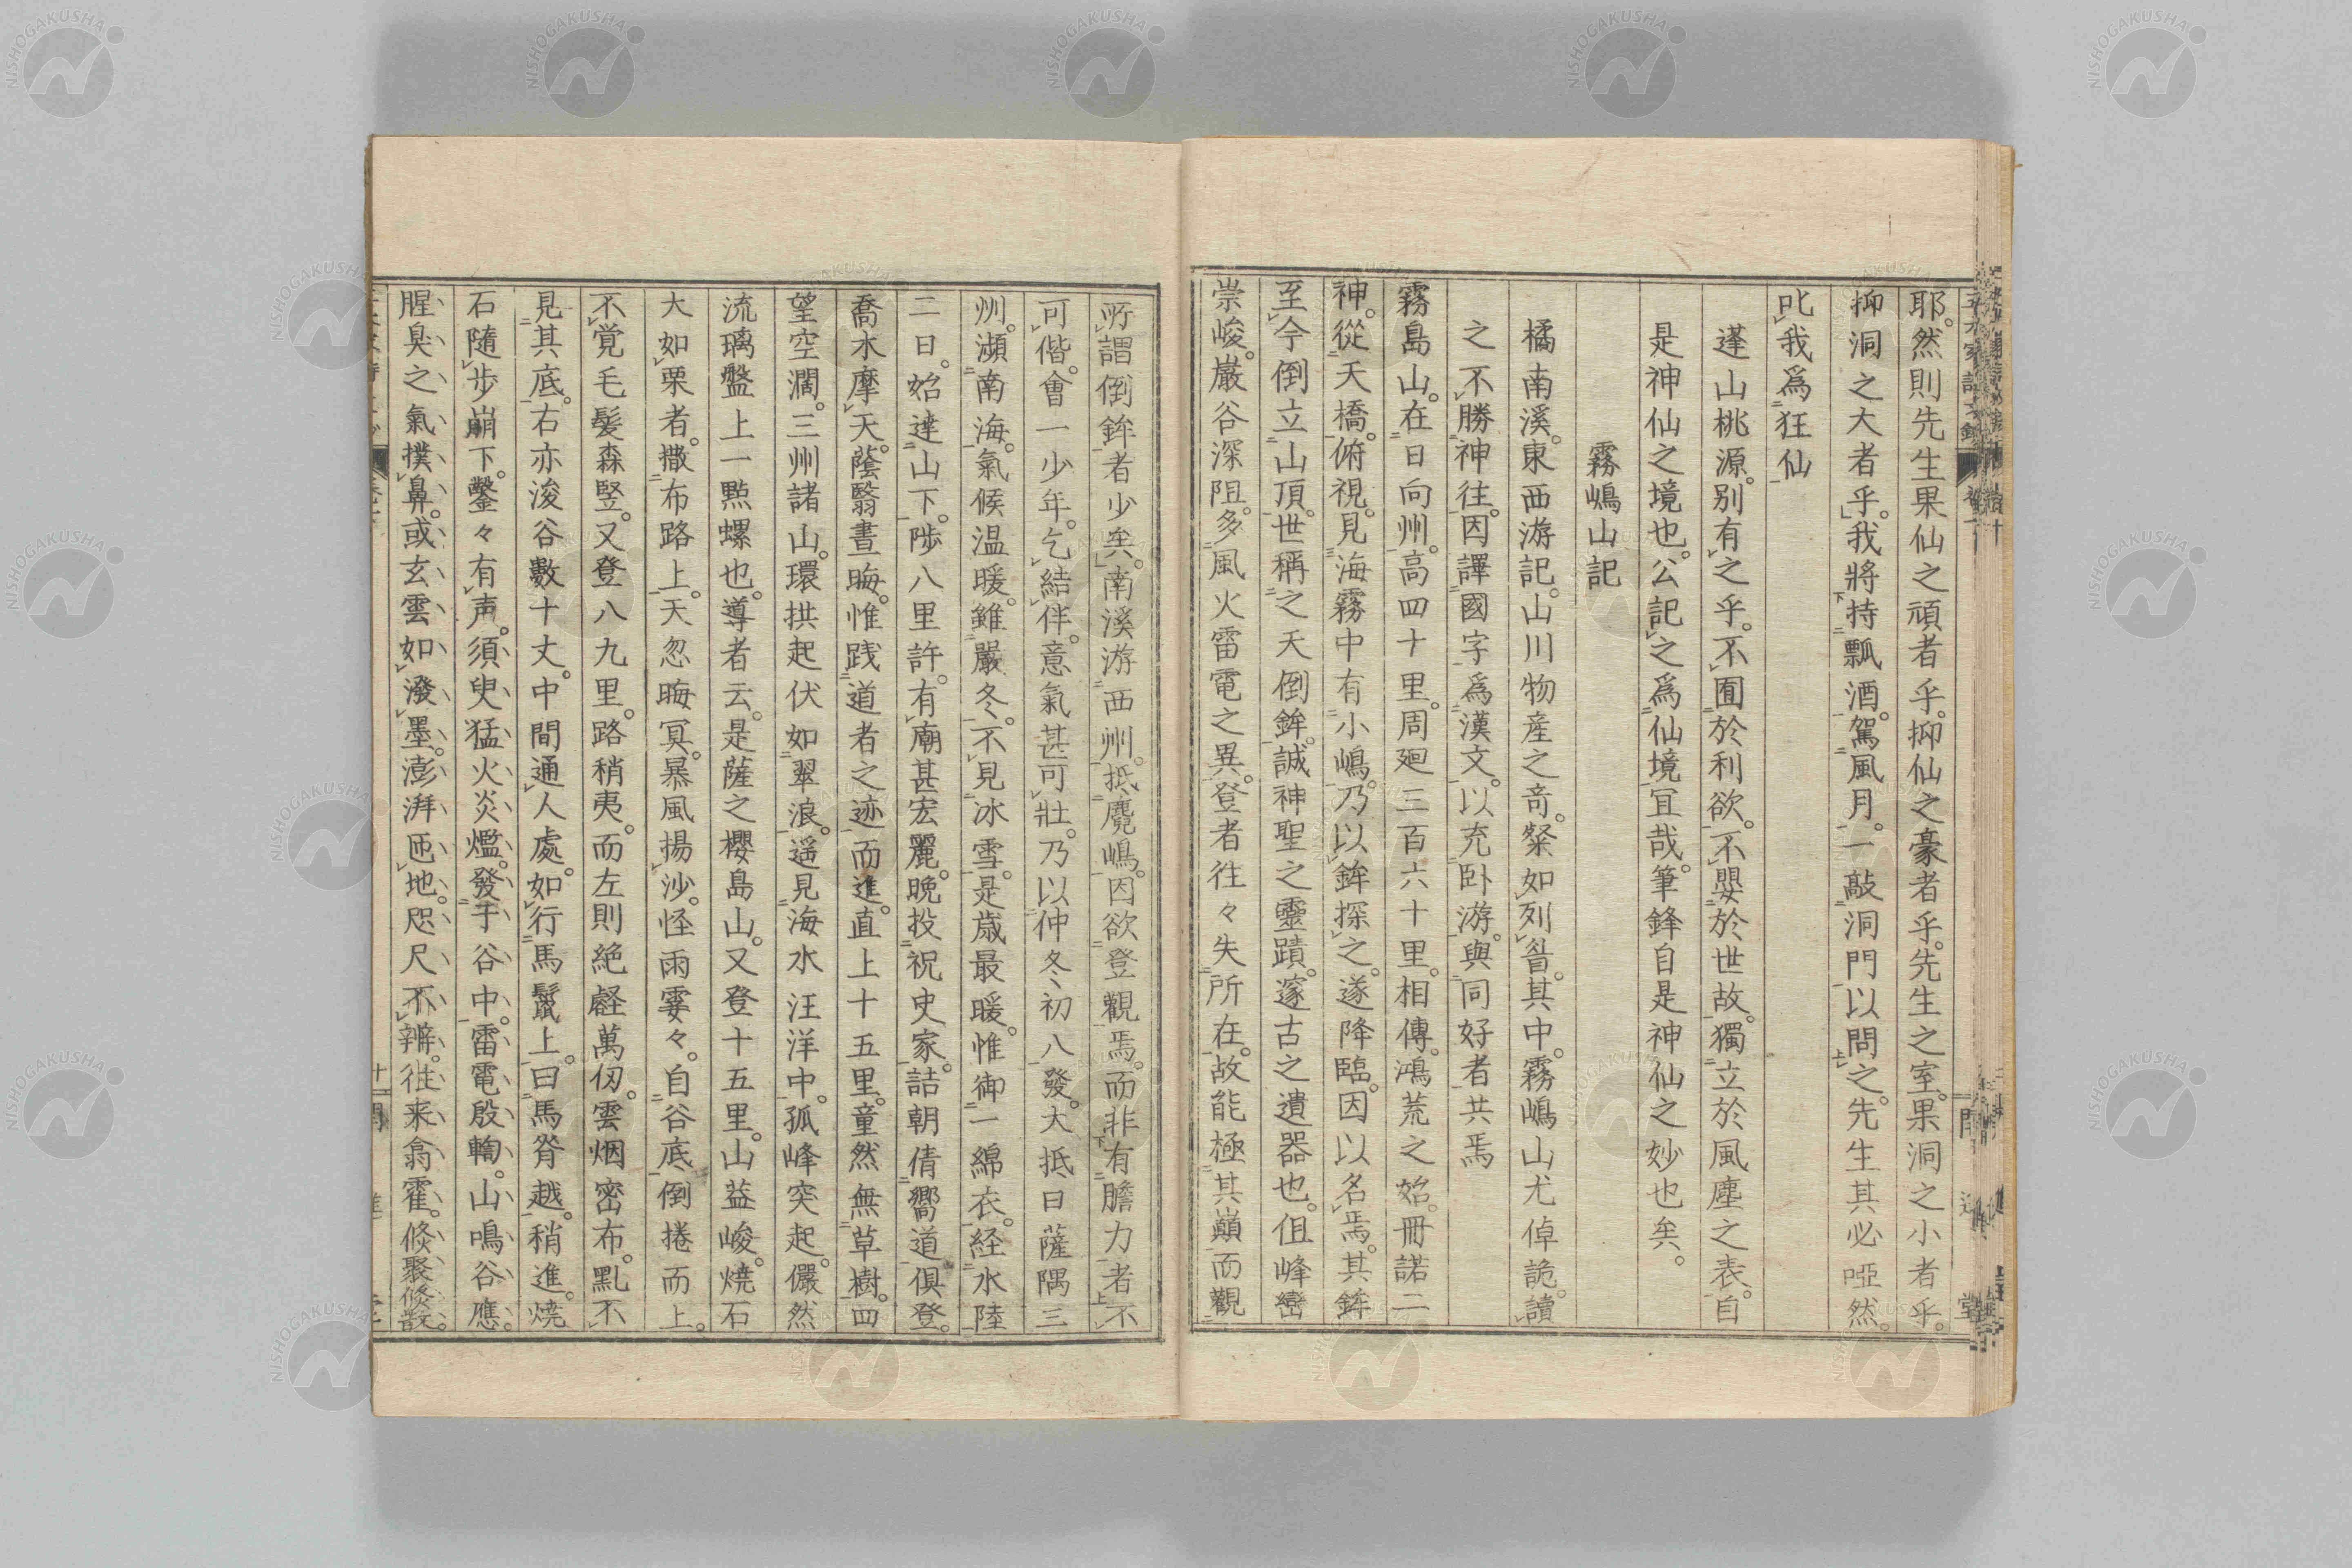 耶。然則先生果仙之頑者乎。抑仙之豪者乎。先生之室。果洞之小者乎。
抑洞之大者乎。我將持瓢酒。駕風月。一敲洞門以問之。先生其必啞然。
叱我爲狂仙
蓬山桃源。別有之乎。不囿於利欲。不嬰於世故。獨立於風塵之表。自
是神仙之境也。公記之爲仙境冝哉。筆鋒自是神仙之妙也矣。
霧嶋山記
橘南溪。東西游記。山川物産之奇。粲如列眥。其中。霧嶋山尤倬詭。讀
之不勝神往。因譯國字爲漢文。以充卧游。與同好者共焉
霧島山。在日向州。高四十里。周廻三百六十里。相傳。鴻荒之始。冊諾二
神。從天橋。俯視。見海霧中有小嶋。乃以鉾探之。遂降臨。因以名焉。其鉾
至今倒立山頂。世稱之天倒鉾。誠神聖之靈蹟。邃古之遺器也。但峰巒
崇峻。巖谷深阻。多風火雷電之異。登者往々失所在。故能極其巓而觀
所謂倒鉾者少矣。南溪游西州。抵麑嶋。因欲登觀焉。而非有膽力者不
可偕。會一少年。乞結伴。意氣甚可壯。乃以仲冬初八發。大抵日薩隅三
州。瀕南海。氣候温暖。雖嚴冬。不見冰雪。是歳最暖。惟御一綿衣。経水陸
二日。始達山下。陟八里許。有廟甚宏麗。晩投祝史家。詰朝倩嚮道。俱登。
喬水摩天。蔭翳晝晦。惟践道者之迹而進。直上十五里。童然無草樹。四
望空濶。三州諸山。環拱起伏如翠浪。遥見海水汪洋中。孤峰突起。儼然
流璃盤上一㸃螺也。導者云。是薩之櫻島山。又登十五里。山益峻。焼石
大如栗者。撒布路上。天忽晦冥。暴風揚沙。怪雨霎々。自谷底倒捲而上。
不覚毛髪森竪。又登八九里。路稍夷。而左則絶壑萬仭。雲烟密布。㸃不
見其底。右亦浚谷數十丈。中間通人處。如行馬鬣上。曰馬脊越。稍進。焼
石隨步崩下。鑿々有声。須臾猛火炎爁。發于谷中。雷電殷輷。山鳴谷應。
腥臭之氣撲鼻。或玄雲如潑墨。澎湃匝地。咫尺不辨。徃来翕霍。倏聚倏散。
NISHOGAKUSHA